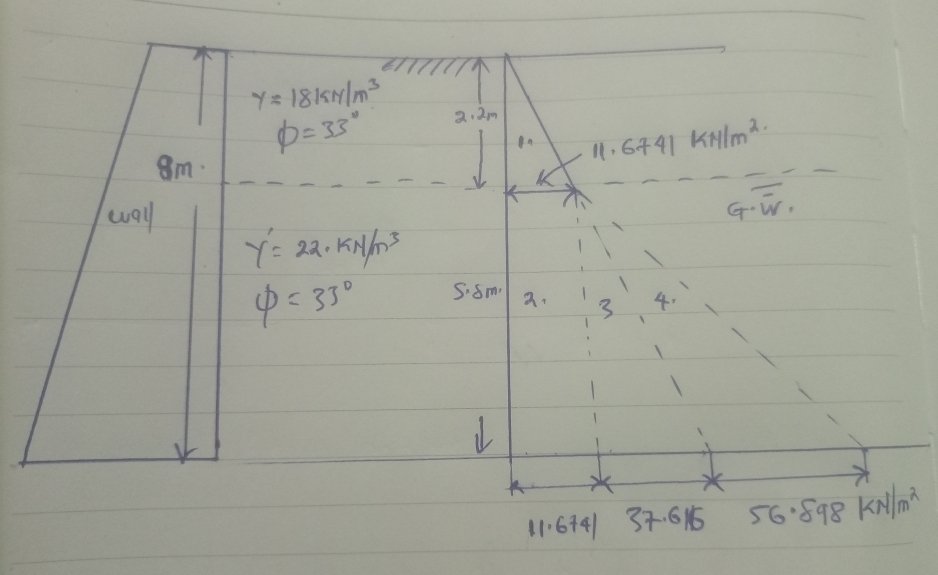 γ = 18KN/m³
ϕ = 33°
8m.
wall
γ' = 22.KN/m³
ϕ = 33°
2.2m
1.
11.6741 KN/m².
G.W.
5.8m.
2.
3
4.
11.6741 37.616 56.898 KN/m²